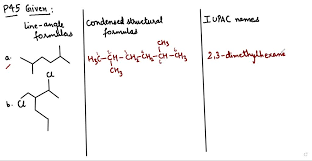 P45 Given:
Line-angle formulas
Condensed structural formulas
IUPAC names
a.
H₃C-CH-CH₂-CH₂-CH-CH₃
CH₃
CH₃
2,3-dimethylhexane
Cl
b. Cl